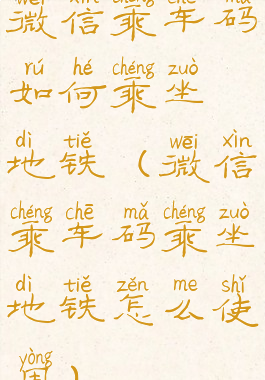 wēi xìn chéng chē mǎ
微信乘车码
rú hé chéng zuò
如何乘坐
dì tiě wēi xìn
地铁（微信
chéng chē mǎ chéng zuò
乘车码乘坐
dì tiě zěn me shǐ
地铁怎么使
yòng
用）